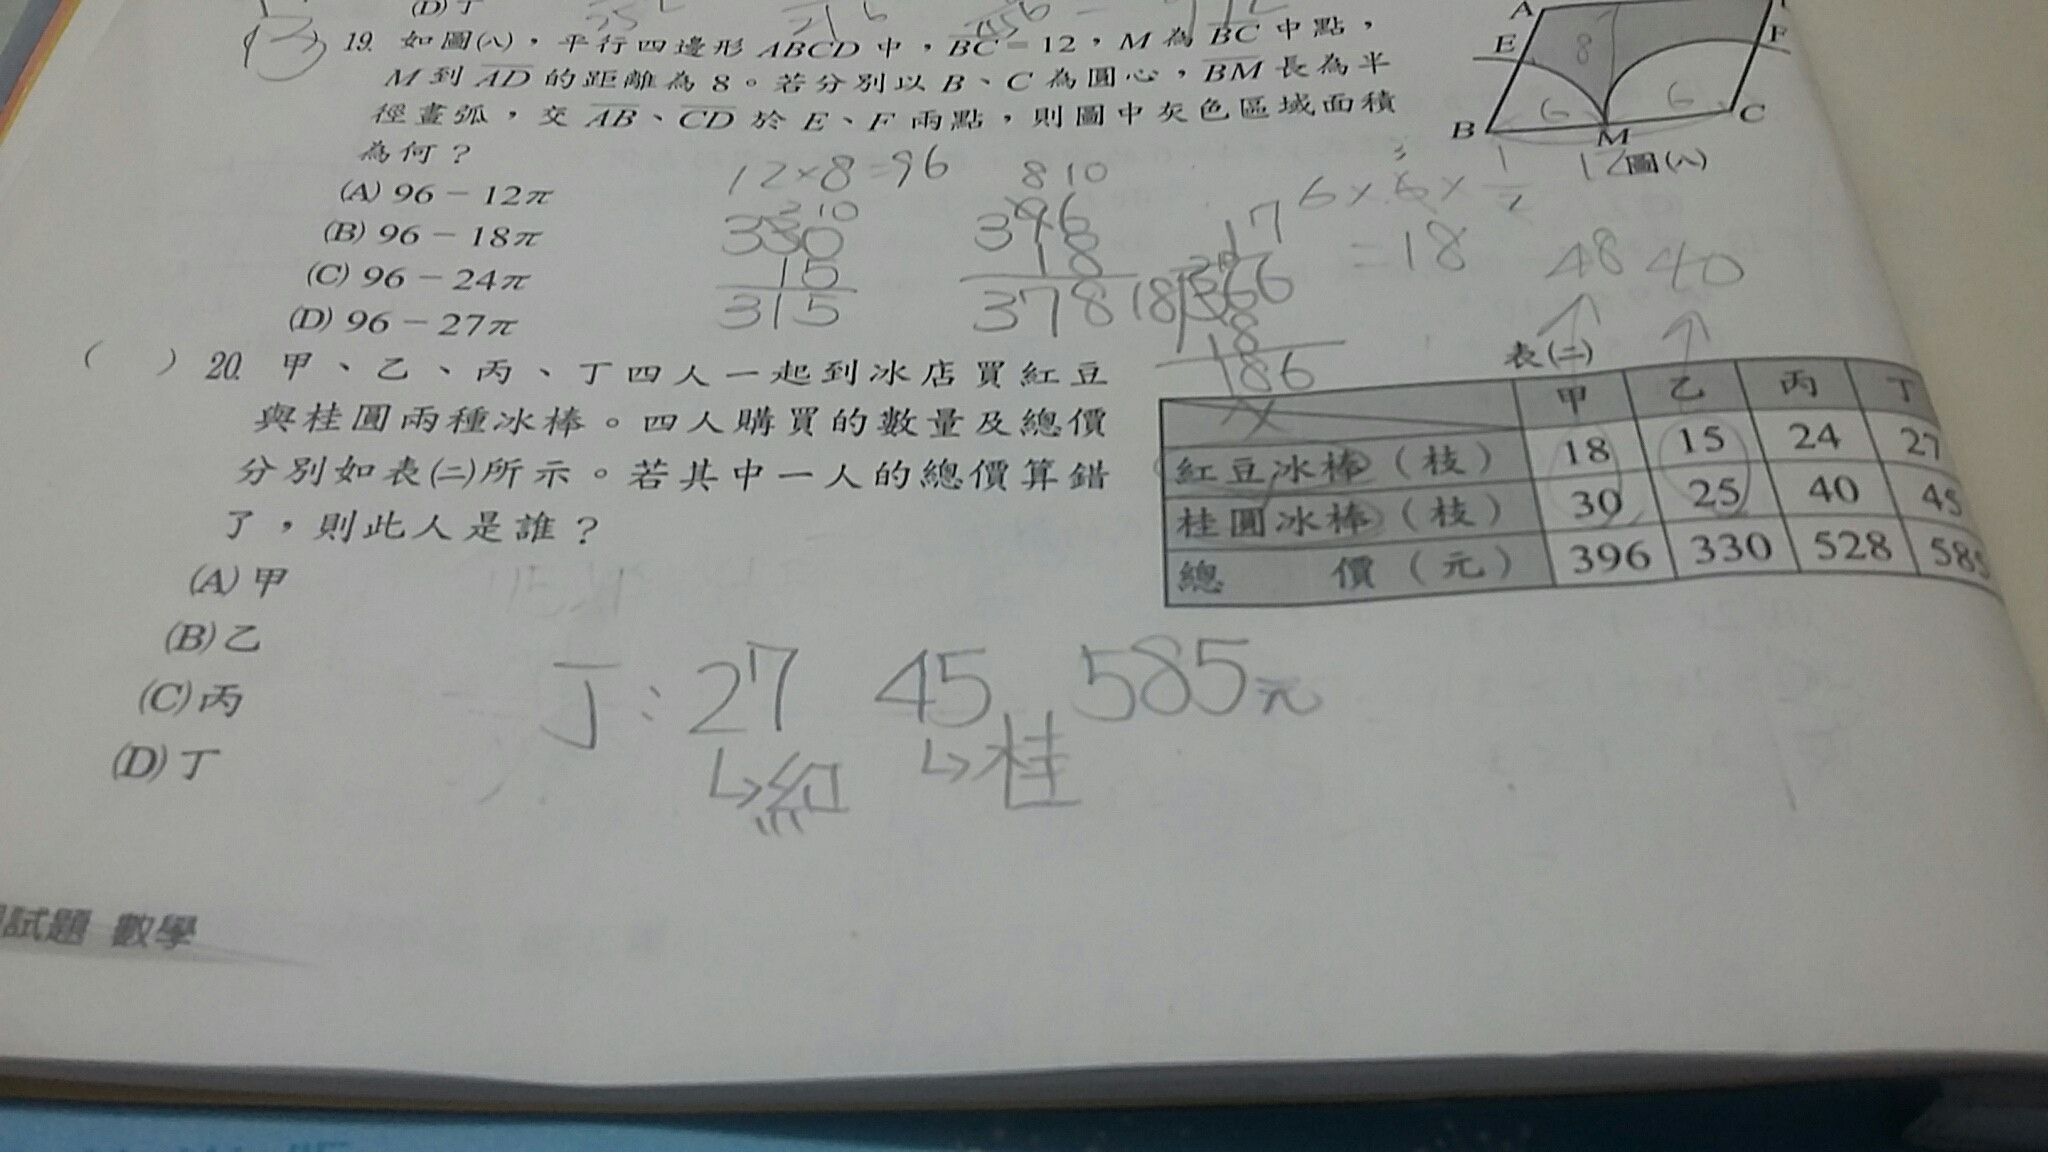 (D)丁
19. 如圖(八)，平行四邊形ABCD中，BC=12，M為BC中點，
M到AD的距離為8。若分別以B、C為圓心，BM長為半
徑畫弧，交AB、CD於E、F兩點，則圖中灰色區域面積
為何？
(A) 96－12π
(B) 96－18π
(C) 96－24π
(D) 96－27π
A
E
F
B
M
C
8
6
6
12
圖(八)
12×8=96
330
15
315
8 10
396
18
378
17
18
366
18
186
=18
48 40
( ) 20. 甲、乙、丙、丁四人一起到冰店買紅豆
與桂圓兩種冰棒。四人購買的數量及總價
分別如表(二)所示。若其中一人的總價算錯
了，則此人是誰？
(A)甲
(B)乙
(C)丙
(D)丁
表(二)
甲 乙 丙 丁
紅豆冰棒（枝） 18 15 24 27
桂圓冰棒（枝） 30 25 40 45
總價（元） 396 330 528 585
丁：27 45 585元
↳紅 ↳桂
試題 數學